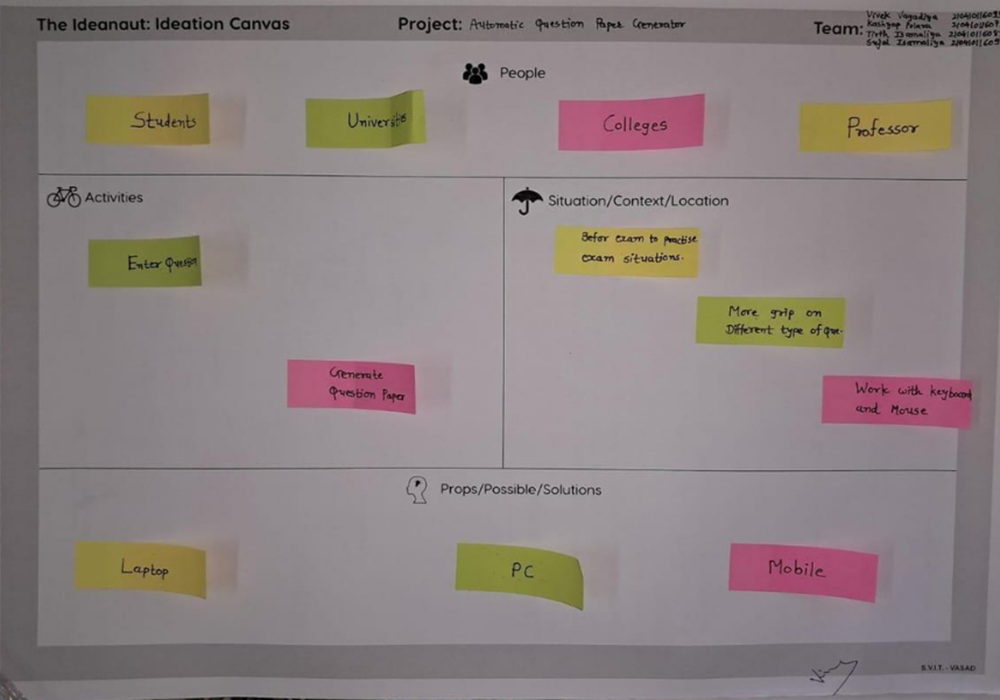 The Ideanaut: Ideation Canvas
Project: Automatic Question Paper Generator
Team:
Vivek Vagadiya
Kashyap
Tirth Isamaliya
Sujal Isamaliya
People
Students
Universities
Colleges
Professor
Activities
Enter Question
Generate
Question Paper
Situation/Context/Location
Befor exam to practise
exam situations.
More grip on
Different type of que.
Work with keyboard
and Mouse
Props/Possible/Solutions
Laptop
PC
Mobile
S.V.I.T. - VASAD